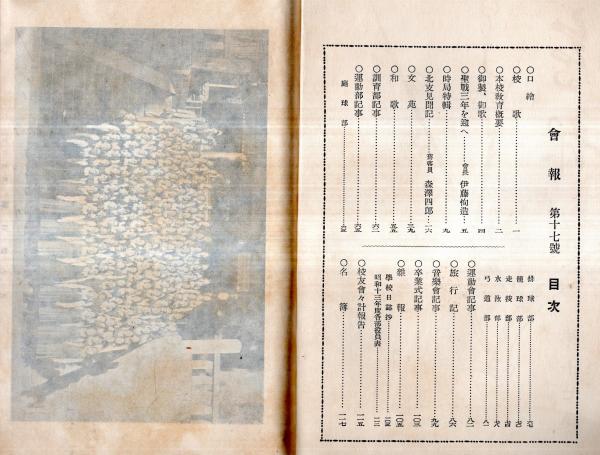 會報 第十七號 目次
〇口繪
〇校歌……一
〇本校教育概要……二
〇御製、御歌……四
〇聖戰三年を迎へ……會長 伊藤恂造……五
〇時局特輯……九
〇北支見聞記……舊客員 森澤四郎……二六
〇文苑……二九
〇和歌……五五
〇訓育部記事……六〇
〇運動部記事……六五
庭球部……
排球部……
籠球部……
走技部……
水泳部……
弓道部……八一
〇運動會記事……八二
〇旅行記……八六
〇音樂會記事……九九
〇卒業式記事……一〇三
〇雜報……一〇五
學校日誌抄……
昭和十三年度各部役員表……一一三
〇校友會々計報告……一一五
〇名簿……一一七